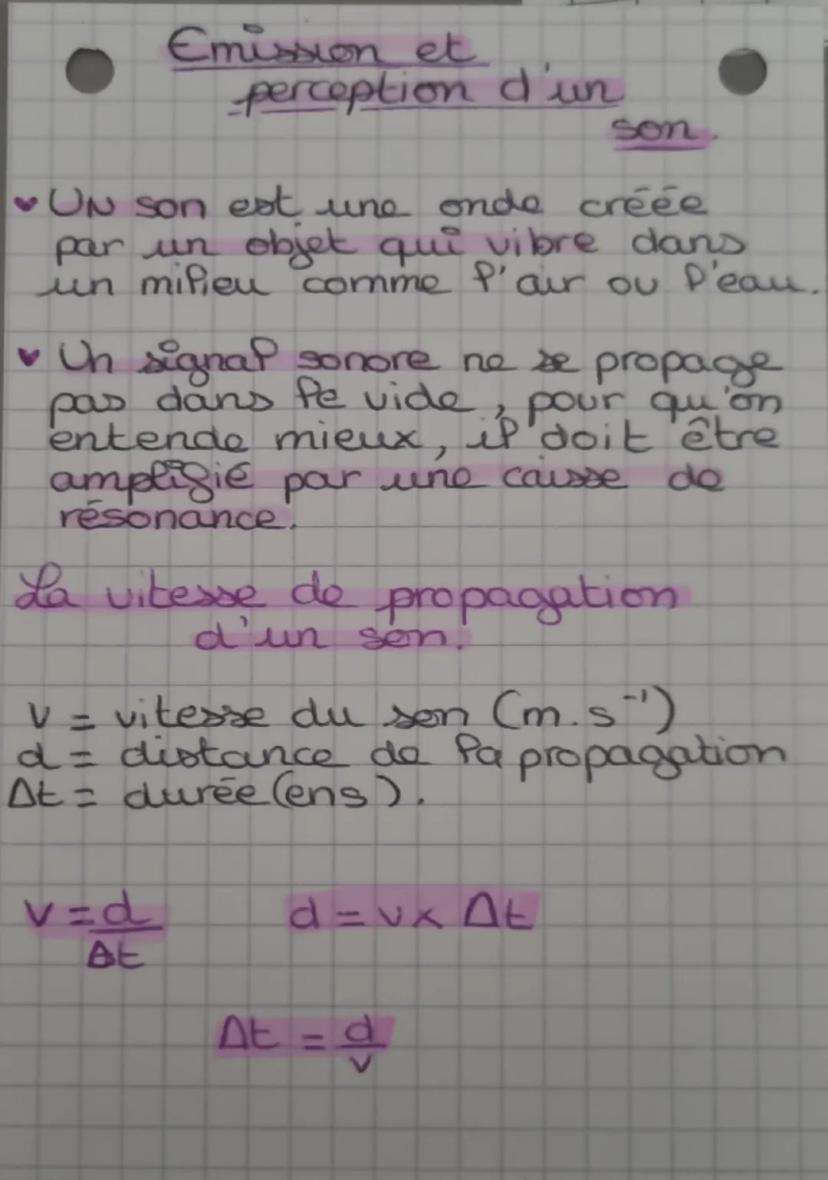 Emission et
perception d'un
son.
♥ UN son est une onde créée
par un objet qui vibre dans
un milieu comme l'air ou l'eau.
♥ Un signal sonore ne se propage
pas dans le vide, pour qu'on
entende mieux, il doit être
amplifié par une caisse de
résonance.
La vitesse de propagation
d'un son.
v = vitesse du son (m.s⁻¹)
d = distance de la propagation
Δt = durée (en s).
v = d/Δt d = v x Δt
Δt = d/v